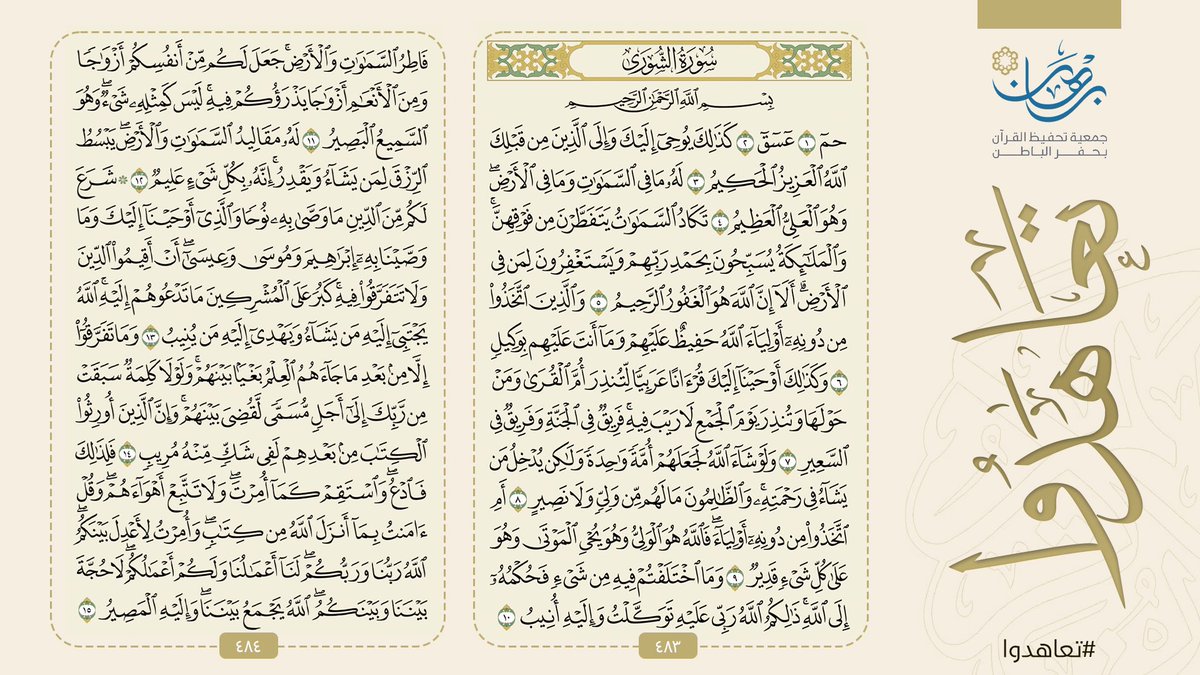 برهان
جمعية تحفيظ القرآن
بحفر الباطن
تعاهدوا
#تعاهدوا
سُورَةُ الشُّورَىٰ
بِسْمِ اللَّهِ الرَّحْمَٰنِ الرَّحِيمِ
حمٓ ١ عٓسٓقٓ ٢ كَذَٰلِكَ يُوحِىٓ إِلَيْكَ وَإِلَى ٱلَّذِينَ مِن قَبْلِكَ
ٱللَّهُ ٱلْعَزِيزُ ٱلْحَكِيمُ ٣ لَهُۥ مَا فِى ٱلسَّمَٰوَٰتِ وَمَا فِى ٱلْأَرْضِۖ
وَهُوَ ٱلْعَلِىُّ ٱلْعَظِيمُ ٤ تَكَادُ ٱلسَّمَٰوَٰتُ يَتَفَطَّرْنَ مِن فَوْقِهِنَّۚ
وَٱلْمَلَٰٓئِكَةُ يُسَبِّحُونَ بِحَمْدِ رَبِّهِمْ وَيَسْتَغْفِرُونَ لِمَن فِى
ٱلْأَرْضِۗ أَلَآ إِنَّ ٱللَّهَ هُوَ ٱلْغَفُورُ ٱلرَّحِيمُ ٥ وَٱلَّذِينَ ٱتَّخَذُوا۟
مِن دُونِهِۦٓ أَوْلِيَآءَ ٱللَّهُ حَفِيظٌ عَلَيْهِمْ وَمَآ أَنتَ عَلَيْهِم بِوَكِيلٍ
٦ وَكَذَٰلِكَ أَوْحَيْنَآ إِلَيْكَ قُرْءَانًا عَرَبِيًّا لِّتُنذِرَ أُمَّ ٱلْقُرَىٰ وَمَنْ
حَوْلَهَا وَتُنذِرَ يَوْمَ ٱلْجَمْعِ لَا رَيْبَ فِيهِۚ فَرِيقٌ فِى ٱلْجَنَّةِ وَفَرِيقٌ فِى
ٱلسَّعِيرِ ٧ وَلَوْ شَآءَ ٱللَّهُ لَجَعَلَهُمْ أُمَّةً وَٰحِدَةً وَلَٰكِن يُدْخِلُ مَن
يَشَآءُ فِى رَحْمَتِهِۦۚ وَٱلظَّٰلِمُونَ مَا لَهُم مِّن وَلِىٍّ وَلَا نَصِيرٍ ٨ أَمِ
ٱتَّخَذُوا۟ مِن دُونِهِۦٓ أَوْلِيَآءَۖ فَٱللَّهُ هُوَ ٱلْوَلِىُّ وَهُوَ يُحْىِ ٱلْمَوْتَىٰ وَهُوَ
عَلَىٰ كُلِّ شَىْءٍ قَدِيرٌ ٩ وَمَا ٱخْتَلَفْتُمْ فِيهِ مِن شَىْءٍ فَحُكْمُهُۥٓ
إِلَى ٱللَّهِۚ ذَٰلِكُمُ ٱللَّهُ رَبِّى عَلَيْهِ تَوَكَّلْتُ وَإِلَيْهِ أُنِيبُ ١٠
٤٨٣
فَاطِرُ ٱلسَّمَٰوَٰتِ وَٱلْأَرْضِۚ جَعَلَ لَكُم مِّنْ أَنفُسِكُمْ أَزْوَٰجًا
وَمِنَ ٱلْأَنْعَٰمِ أَزْوَٰجًا يَذْرَؤُكُمْ فِيهِۚ لَيْسَ كَمِثْلِهِۦ شَىْءٌۖ وَهُوَ
ٱلسَّمِيعُ ٱلْبَصِيرُ ١١ لَهُۥ مَقَالِيدُ ٱلسَّمَٰوَٰتِ وَٱلْأَرْضِۖ يَبْسُطُ
ٱلرِّزْقَ لِمَن يَشَآءُ وَيَقْدِرُۚ إِنَّهُۥ بِكُلِّ شَىْءٍ عَلِيمٌ ١٢ ۞ شَرَعَ
لَكُم مِّنَ ٱلدِّينِ مَا وَصَّىٰ بِهِۦ نُوحًا وَٱلَّذِىٓ أَوْحَيْنَآ إِلَيْكَ وَمَا
وَصَّيْنَا بِهِۦٓ إِبْرَٰهِيمَ وَمُوسَىٰ وَعِيسَىٰٓۖ أَنْ أَقِيمُوا۟ ٱلدِّينَ
وَلَا تَتَفَرَّقُوا۟ فِيهِۚ كَبُرَ عَلَى ٱلْمُشْرِكِينَ مَا تَدْعُوهُمْ إِلَيْهِۚ ٱللَّهُ
يَجْتَبِىٓ إِلَيْهِ مَن يَشَآءُ وَيَهْدِىٓ إِلَيْهِ مَن يُنِيبُ ١٣ وَمَا تَفَرَّقُوٓا۟
إِلَّا مِنۢ بَعْدِ مَا جَآءَهُمُ ٱلْعِلْمُ بَغْيًۢا بَيْنَهُمْۚ وَلَوْلَا كَلِمَةٌ سَبَقَتْ
مِن رَّبِّكَ إِلَىٰٓ أَجَلٍ مُّسَمًّى لَّقُضِىَ بَيْنَهُمْۚ وَإِنَّ ٱلَّذِينَ أُورِثُوا۟
ٱلْكِتَٰبَ مِنۢ بَعْدِهِمْ لَفِى شَكٍّ مِّنْهُ مُرِيبٍ ١٤ فَلِذَٰلِكَ
فَٱدْعُۖ وَٱسْتَقِمْ كَمَآ أُمِرْتَۖ وَلَا تَتَّبِعْ أَهْوَآءَهُمْۖ وَقُلْ
ءَامَنتُ بِمَآ أَنزَلَ ٱللَّهُ مِن كِتَٰبٍۖ وَأُمِرْتُ لِأَعْدِلَ بَيْنَكُمُۖ
ٱللَّهُ رَبُّنَا وَرَبُّكُمْۖ لَنَآ أَعْمَٰلُنَا وَلَكُمْ أَعْمَٰلُكُمْۖ لَا حُجَّةَ
بَيْنَنَا وَبَيْنَكُمُۖ ٱللَّهُ يَجْمَعُ بَيْنَنَاۖ وَإِلَيْهِ ٱلْمَصِيرُ ١٥
٤٨٤